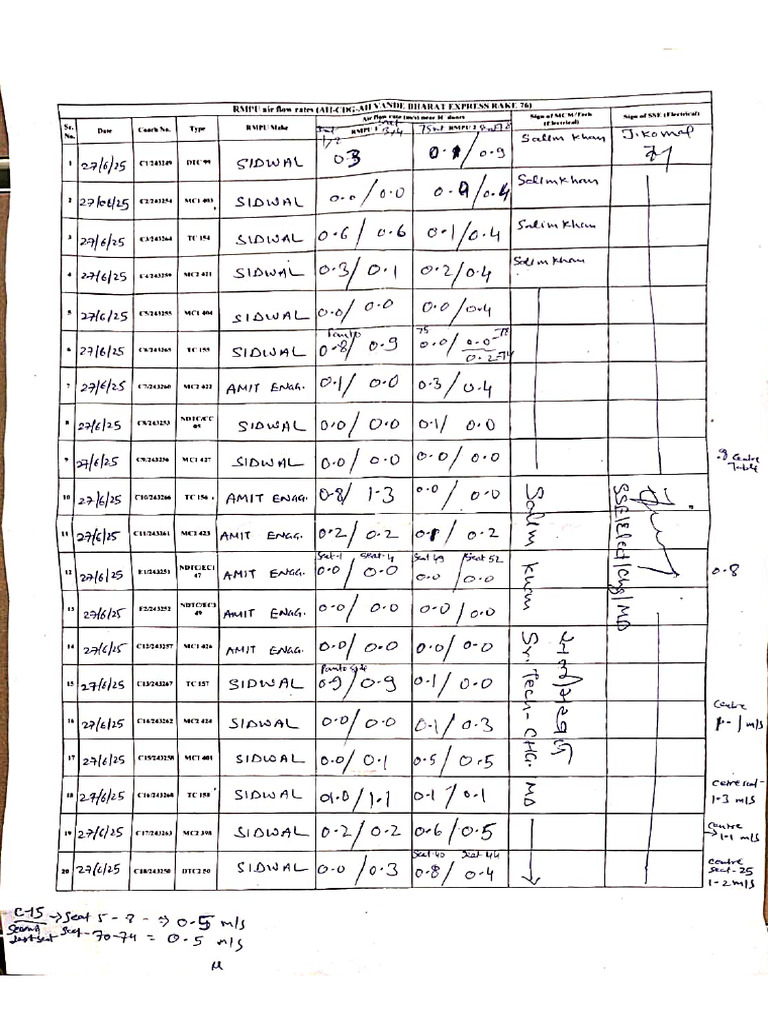 RMPU air flow rates (AII-CDG-AII VANDE BHARAT EXPRESS RAKE 76)
Sr. No. Date Coach No. Type RMPU Make Air flow rate (m/s) near M' doors Sign of MCM/Tech (Electrical) Sign of SSE (Electrical)
RMPU 1 3/4 75 RMPU 2
1/2
1 27/6/25 C1/243249 DTC 99 SIDWAL 0.3 0.1/0.9 Salim Khan J. Komal
2 27/06/25 C2/243254 MC1 403 SIDWAL 0.0/0.0 0.0/0.4 Salim Khan
3 27/6/25 C3/243264 TC 154 SIDWAL 0.6/0.6 0.1/0.4 Salim Khan
4 27/6/25 C4/243259 MC2 421 SIDWAL 0.3/0.1 0.2/0.4 Salim Khan
5 27/6/25 C5/243255 MC1 404 SIDWAL 0.0/0.0 0.0/0.4
6 27/6/25 C6/243265 TC 155 SIDWAL Panto 0.8/0.9 75 0.0/0.0-78
0.2-74
7 27/6/25 C7/243260 MC2 422 AMIT ENGG. 0.1/0.0 0.3/0.4
8 27/6/25 C8/243253 NDTC/EC 05 SIDWAL 0.0/0.0 0.1/0.0
9 27/6/25 C9/243256 MC1 427 SIDWAL 0.0/0.0 0.0/0.0 .9 Centre Table
10 27/6/25 C10/243266 TC 156 AMIT ENGG. 0.8/1.3 0.0/0.0
11 27/6/25 C11/243261 MC2 423 AMIT ENGG. 0.2/0.2 0.1/0.2
Seat-1 Seat-4 Seat 49 Seat 52
12 27/6/25 E1/243251 NDTC/EC1 47 AMIT ENGG. 0.0/0.0 0.0/0.0 0.8
13 27/6/25 E2/243252 NDTC/EC3 49 AMIT ENGG. 0.0/0.0 0.0/0.0
14 27/6/25 C12/243257 MC1 426 AMIT ENGG. 0.0/0.0 0.0/0.0
Panto side
15 27/6/25 C13/243267 TC 157 SIDWAL 0.9/0.9 0.1/0.0
16 27/6/25 C14/243262 MC2 424 SIDWAL 0.0/0.0 0.1/0.3 Centre 1-1 m/s
17 27/6/25 C15/243258 MC1 401 SIDWAL 0.0/0.1 0.5/0.5
18 27/6/25 C16/243268 TC 158 SIDWAL 1.0/1.1 0.1/0.1 1-3 m/s
19 27/6/25 C17/243263 MC2 398 SIDWAL 0.2/0.2 0.6/0.5 Centre 1-1 m/s
Seat 40 Seat 44
20 27/6/25 C18/243250 DTC2 50 SIDWAL 0.0/0.3 0.8/0.4 Centre seat-25 1-2 m/s
Salim Khan
Sr. Tech- CHG. MD
SSE/Elect/Chg/MD
C-15 → Seat 5-8 ⇒ 0.5 m/s
Second last seat Seat-70-74 = 0.5 m/s